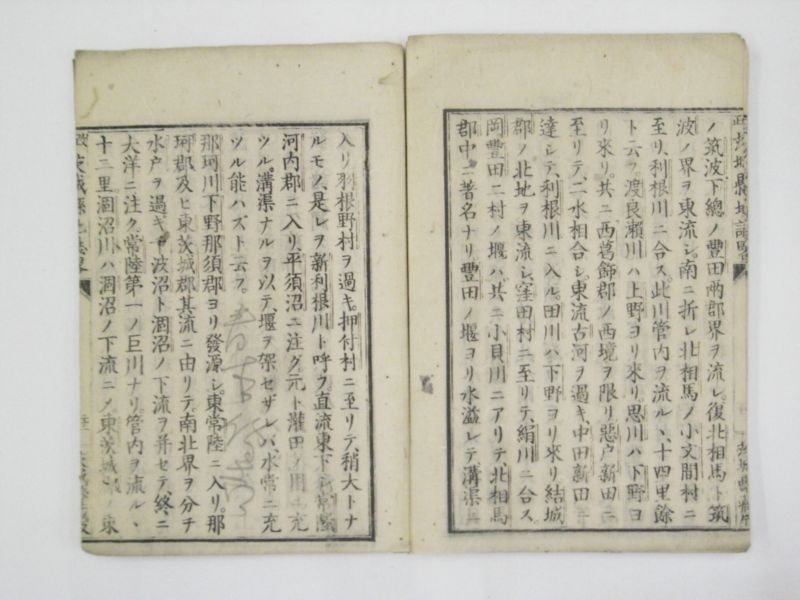 ノ筑波下總ノ豐田兩郡界ヲ流レ復北相馬ト筑
波ノ界ヲ東流シ南ニ折レ北相馬ノ小文間村ニ
至リ利根川ニ合ス此川管内ヲ流ル丶十四里餘
ト云フ渡良瀬川ハ上野ヨリ來リ思川ハ下野ヨ
リ來リ共ニ西葛飾郡ノ西境ヲ限リ惡戸新田ニ
至リテ二水相合シ東流古河ヲ過キ中田新田ニ
達シテ利根川ニ入ル田川ハ下野ヨリ來リ結城
郡ノ北地ヲ東流シ窪田村ニ至リテ絹川ニ合ス
岡豐田二村ノ堰ハ共ニ小貝川ニアリテ北相馬
郡中ニ著名ナリ豐田ノ堰ヨリ水溢レテ溝渠ニ
入リ羽根野村ヲ過キ押付村ニ至リテ稍大トナ
ルモノ是レヲ新利根川ト呼フ直流東下シ常陸
河内郡ニ入リ平須沼ニ注グ元ト灌田ノ用ニ充
ツル溝渠ナルヲ以テ堰ヲ架セザレバ水常ニ充
ツル能ハズト云フ
那珂川下野那須郡ヨリ發源シ東常陸ニ入リ那
珂郡及ヒ東茨城郡其流ニ由リテ南北界ヲ分チ
水戸ヲ過キ千波沼ト涸沼ノ下流ヲ并セテ終ニ
大洋ニ注ク常陸第一ノ巨川ナリ管内ヲ流ル丶
十二里涸沼川ハ涸沼ノ下流ニノ東茨城ノ東